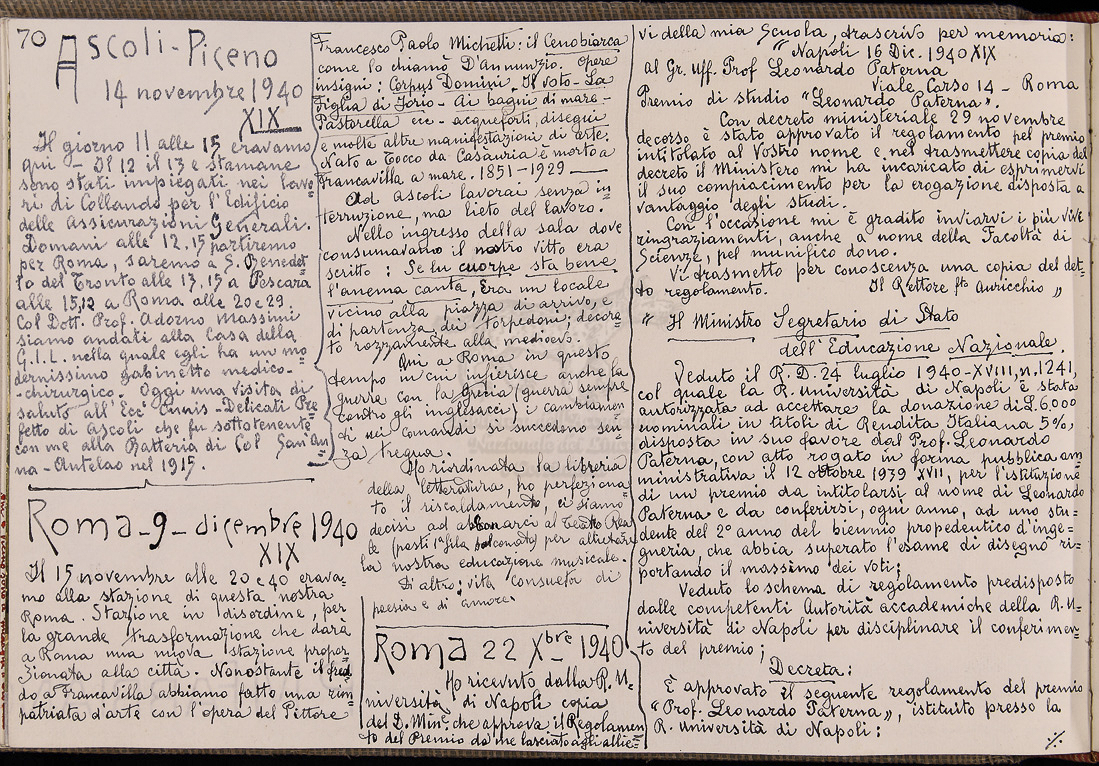 70
Ascoli-Piceno
14 novembre 1940
XIX
Il giorno 11 alle 15 eravamo
qui - Il 12 il 13 e stamane
sono stati impiegati nei lavo=
ri di Collaudo per l'Edificio
delle Assicurazioni Generali.
Domani alle 12.15 partiremo
per Roma, saremo a S. Benedet=
to del Tronto alle 13,15 a Pescara
alle 15,12 a Roma alle 20 e 29.
Col Dott. Prof. Adorno Massimi
siamo andati alla Casa della
G.I.L. nella quale egli ha un mo=
dernissimo gabinetto medico-
-chirurgico. Oggi una visita di
saluto all'Ecc Ennis-Delicati Pre=
fetto di Ascoli che fu sottotenente
con me alla Batteria di Col San An=
na-Antelao nel 1915.
Roma-9-dicembre 1940
XIX
Il 15 novembre alle 20 e 40 erava=
mo alla stazione di questa nostra
Roma. Stazione in disordine, per
la grande trasformazione che darà
a Roma una nuova stazione propor=
zionata alla città. Nonostante il fred=
do a Francavilla abbiamo fatto una rim=
patriata d'arte con l'opera del Pittore
Francesco Paolo Michetti: il Cenobiarca
come lo chiamò D'Annunzio. Opere
insigni: Corpus Domini. Il voto-La
Figlia di Jorio-Ai bagni di mare-
Pastorella ecc-acqueforti, disegni
e molte altre manifestazioni di arte.
Nato a Tocco da Casauria è morto a
Francavilla a mare. 1851-1929
Ad Ascoli lavorai senza in=
terruzione, ma lieto del lavoro.
Nello ingresso della sala dove
consumavamo il nostro vitto era
scritto: Se lu cuorpe sta bene
l'anema canta, Era un locale
vicino alla piazza di arrivo, e
di partenza dei torpedoni: decora=
to rozzamente alla medioevo.
Qui a Roma in questo
tempo in cui infierisce anche la
guerra con la Grecia (guerra sempre
contro gli inglesacci) i cambiamen=
ti nei Comandi si succedono sen=
za tregua.
Ho riordinata la libreria
della letteratura, ho perfeziona=
to il riscaldamento, ci siamo
decisi ad abbonarci al Teatro Rea=
le (posti 1a fila balconata) per attivare
la nostra educazione musicale.
Di altro: vita consueta di
poesia e di amore.
Roma 22 Xbre 1940
Ho ricevuto dalla R. U=
niversità di Napoli copia
del D. Min.e che approva il Regolamen=
to del Premio da me lasciato agli allie=
vi della mia Scuola, trascrivo per memoria:
"Napoli 16 Dic. 1940 XIX
al Gr. Uff. Prof Leonardo Paterna
Viale Carso 14 - Roma
Premio di studio "Leonardo Paterna".
Con decreto ministeriale 29 novembre
decorso è stato approvato il regolamento pel premio
intitolato al Vostro nome e nel trasmettere copia del
decreto il Ministero mi ha incaricato di esprimervi
il suo compiacimento per la erogazione disposta a
vantaggio degli studi.
Con l'occasione mi è gradito inviarvi i più vivi
ringraziamenti, anche a nome della Facoltà di
Scienze, pel munifico dono.
Vi trasmetto per conoscenza una copia del det=
to regolamento. Il Rettore fto Auricchio "
"Il Ministro Segretario di Stato
dell'Educazione Nazionale.
Veduto il R.D. 24 luglio 1940-XVIII, n.1241,
col quale la R. università di Napoli è stata
autorizzata ad accettare la donazione di £.6,000
nominali in titoli di Rendita Italiana 5%,
disposta in suo favore dal Prof. Leonardo
Paterna, con atto rogato in forma pubblica am
ministrativa il 12 ottobre 1939 XVII, per l'istituzione
di un premio da intitolarsi al nome di Leonardo
Paterna e da conferirsi, ogni anno, ad uno stu=
dente del 2° anno del biennio propedeutico d'inge=
gneria, che abbia superato l'esame di disegno ri=
portando il massimo dei voti;
Veduto lo schema di regolamento predisposto
dalle competenti Autorità accademiche della R. U=
niversità di Napoli per disciplinare il conferimen=
to del premio;
Decreta:
È approvato il seguente regolamento del premio
"Prof. Leonardo Paterna", istituito presso la
R. università di Napoli:
./.